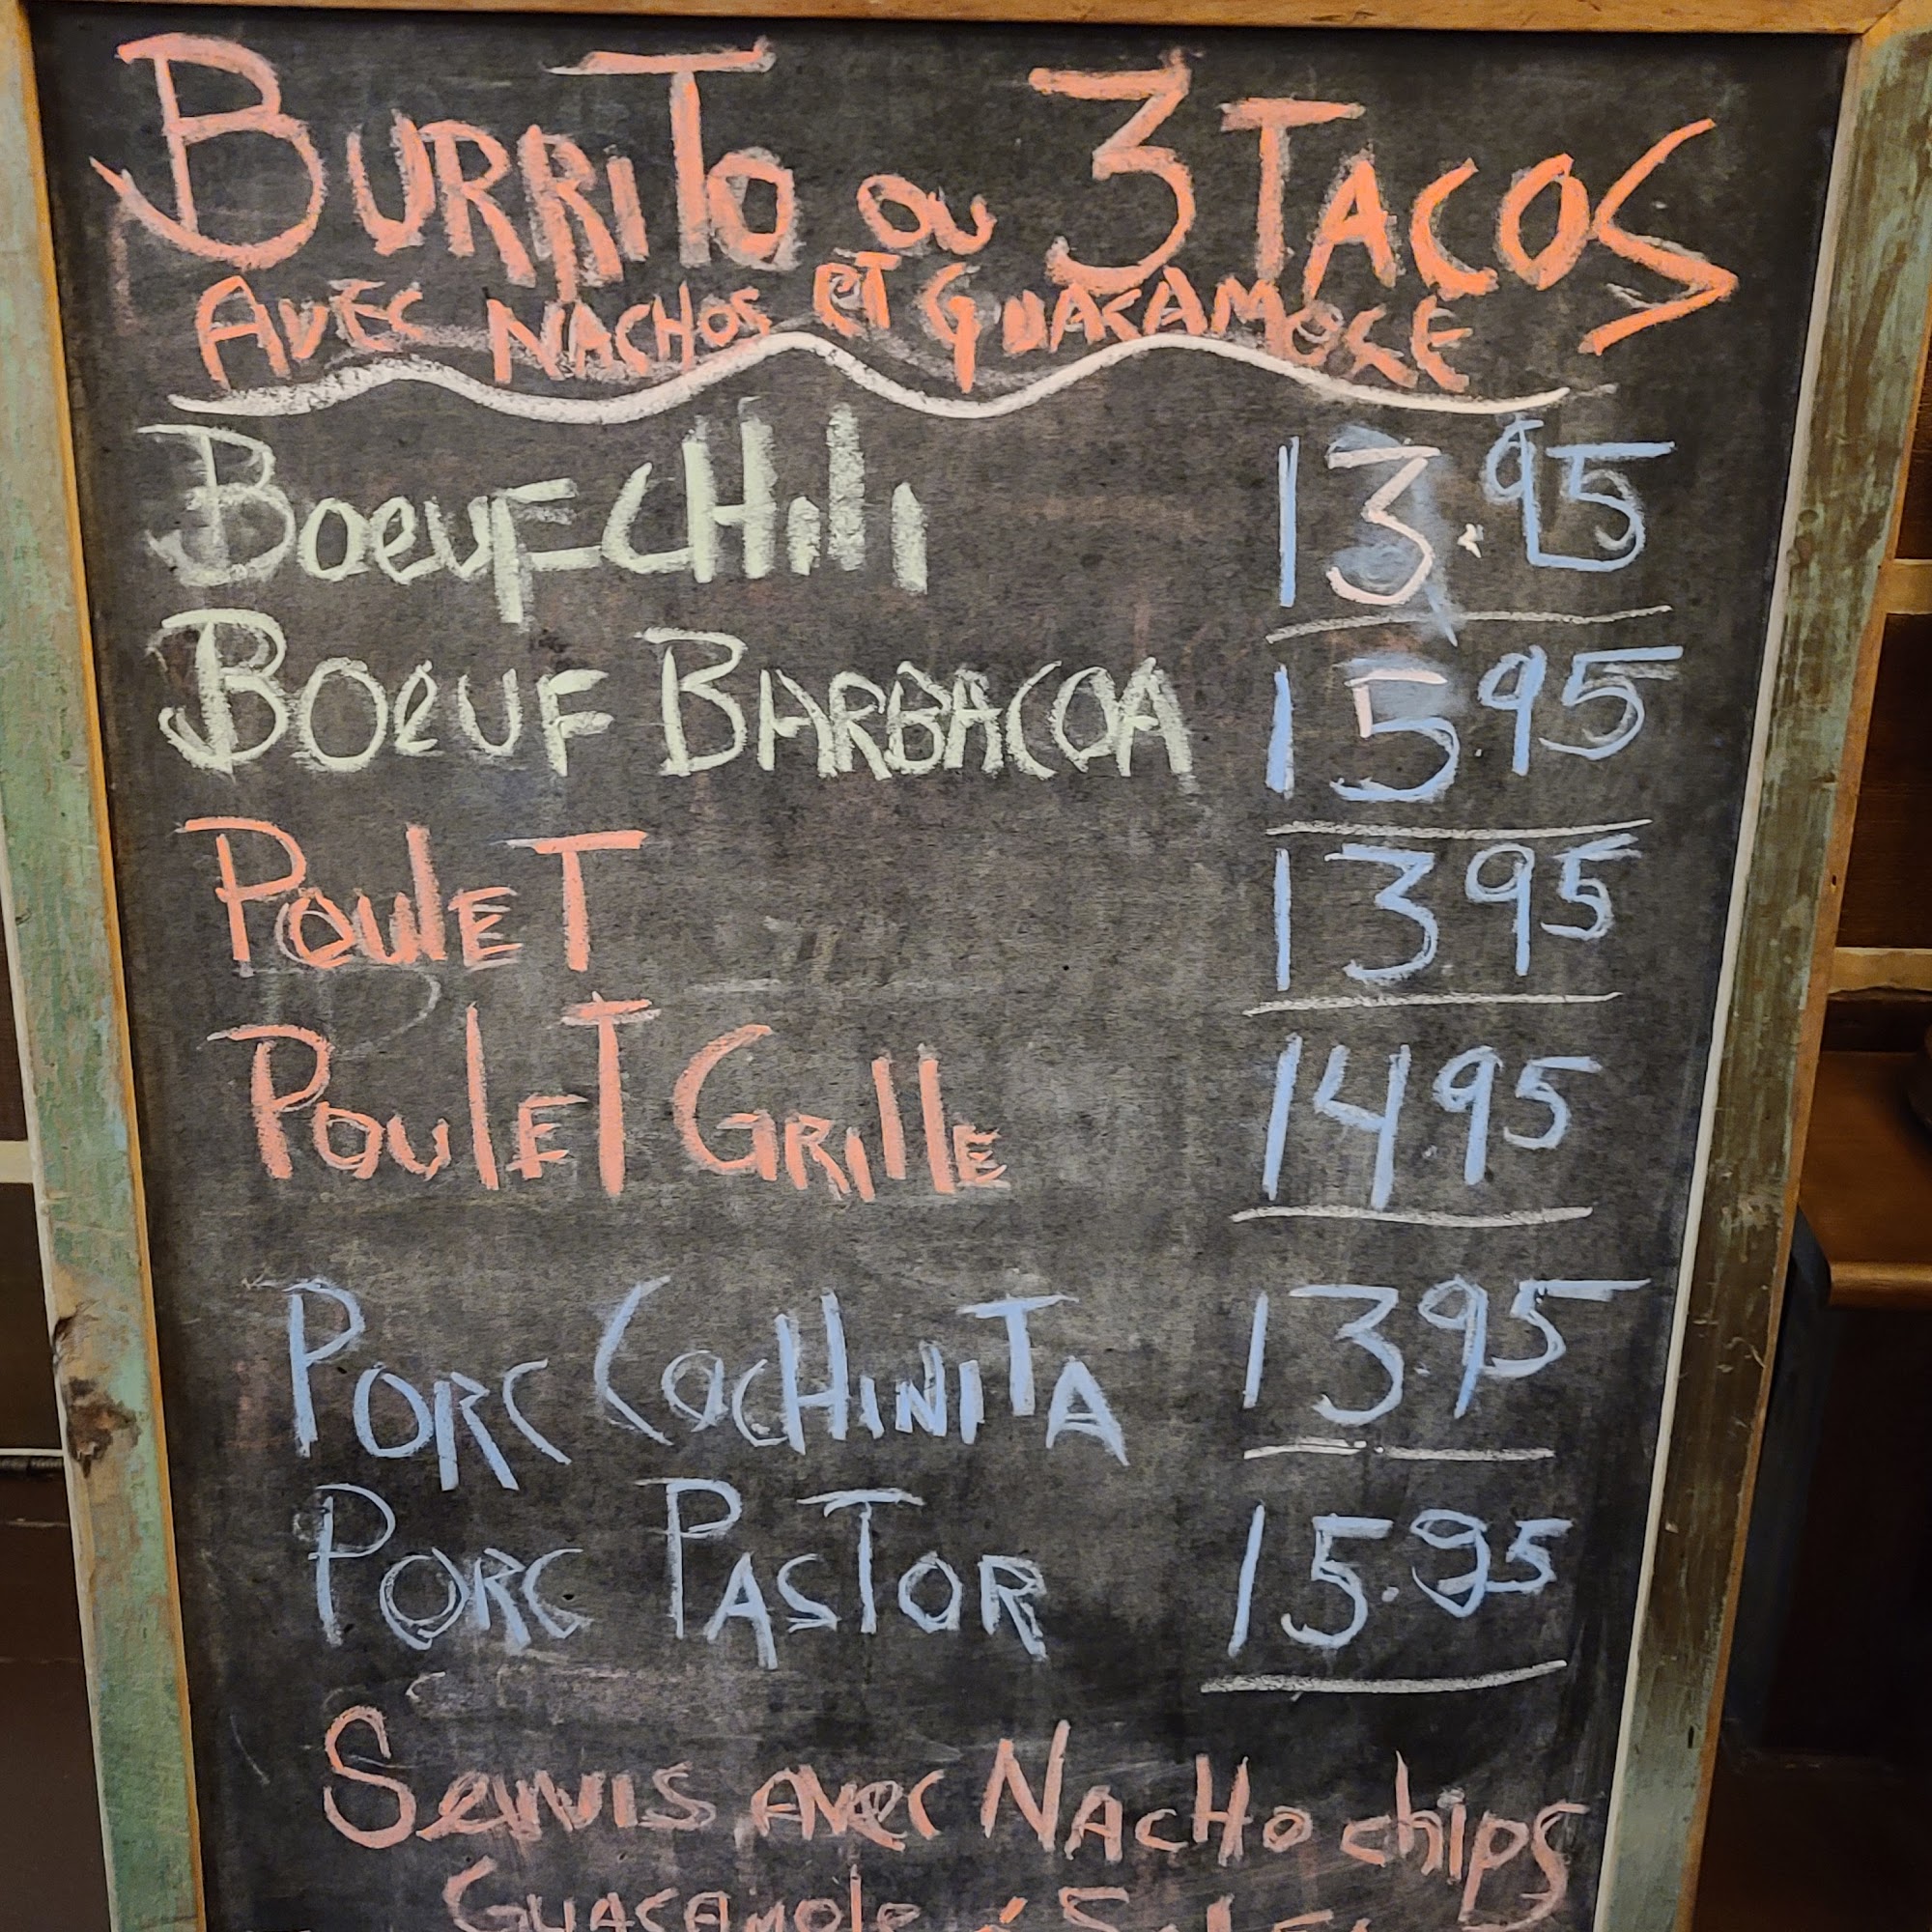 BURRITO OU 3 TACOS
AVEC NACHOS ET GUACAMOLE
BOEUF CHili 13.95
BOEUF BARBACOA 15.95
POULET 13.95
POULET GRILLE 14.95
PORC COCHINITA 13.95
PORC PASTOR 15.95
SERVIS AVEC NACHO chips
GUACAMOLE